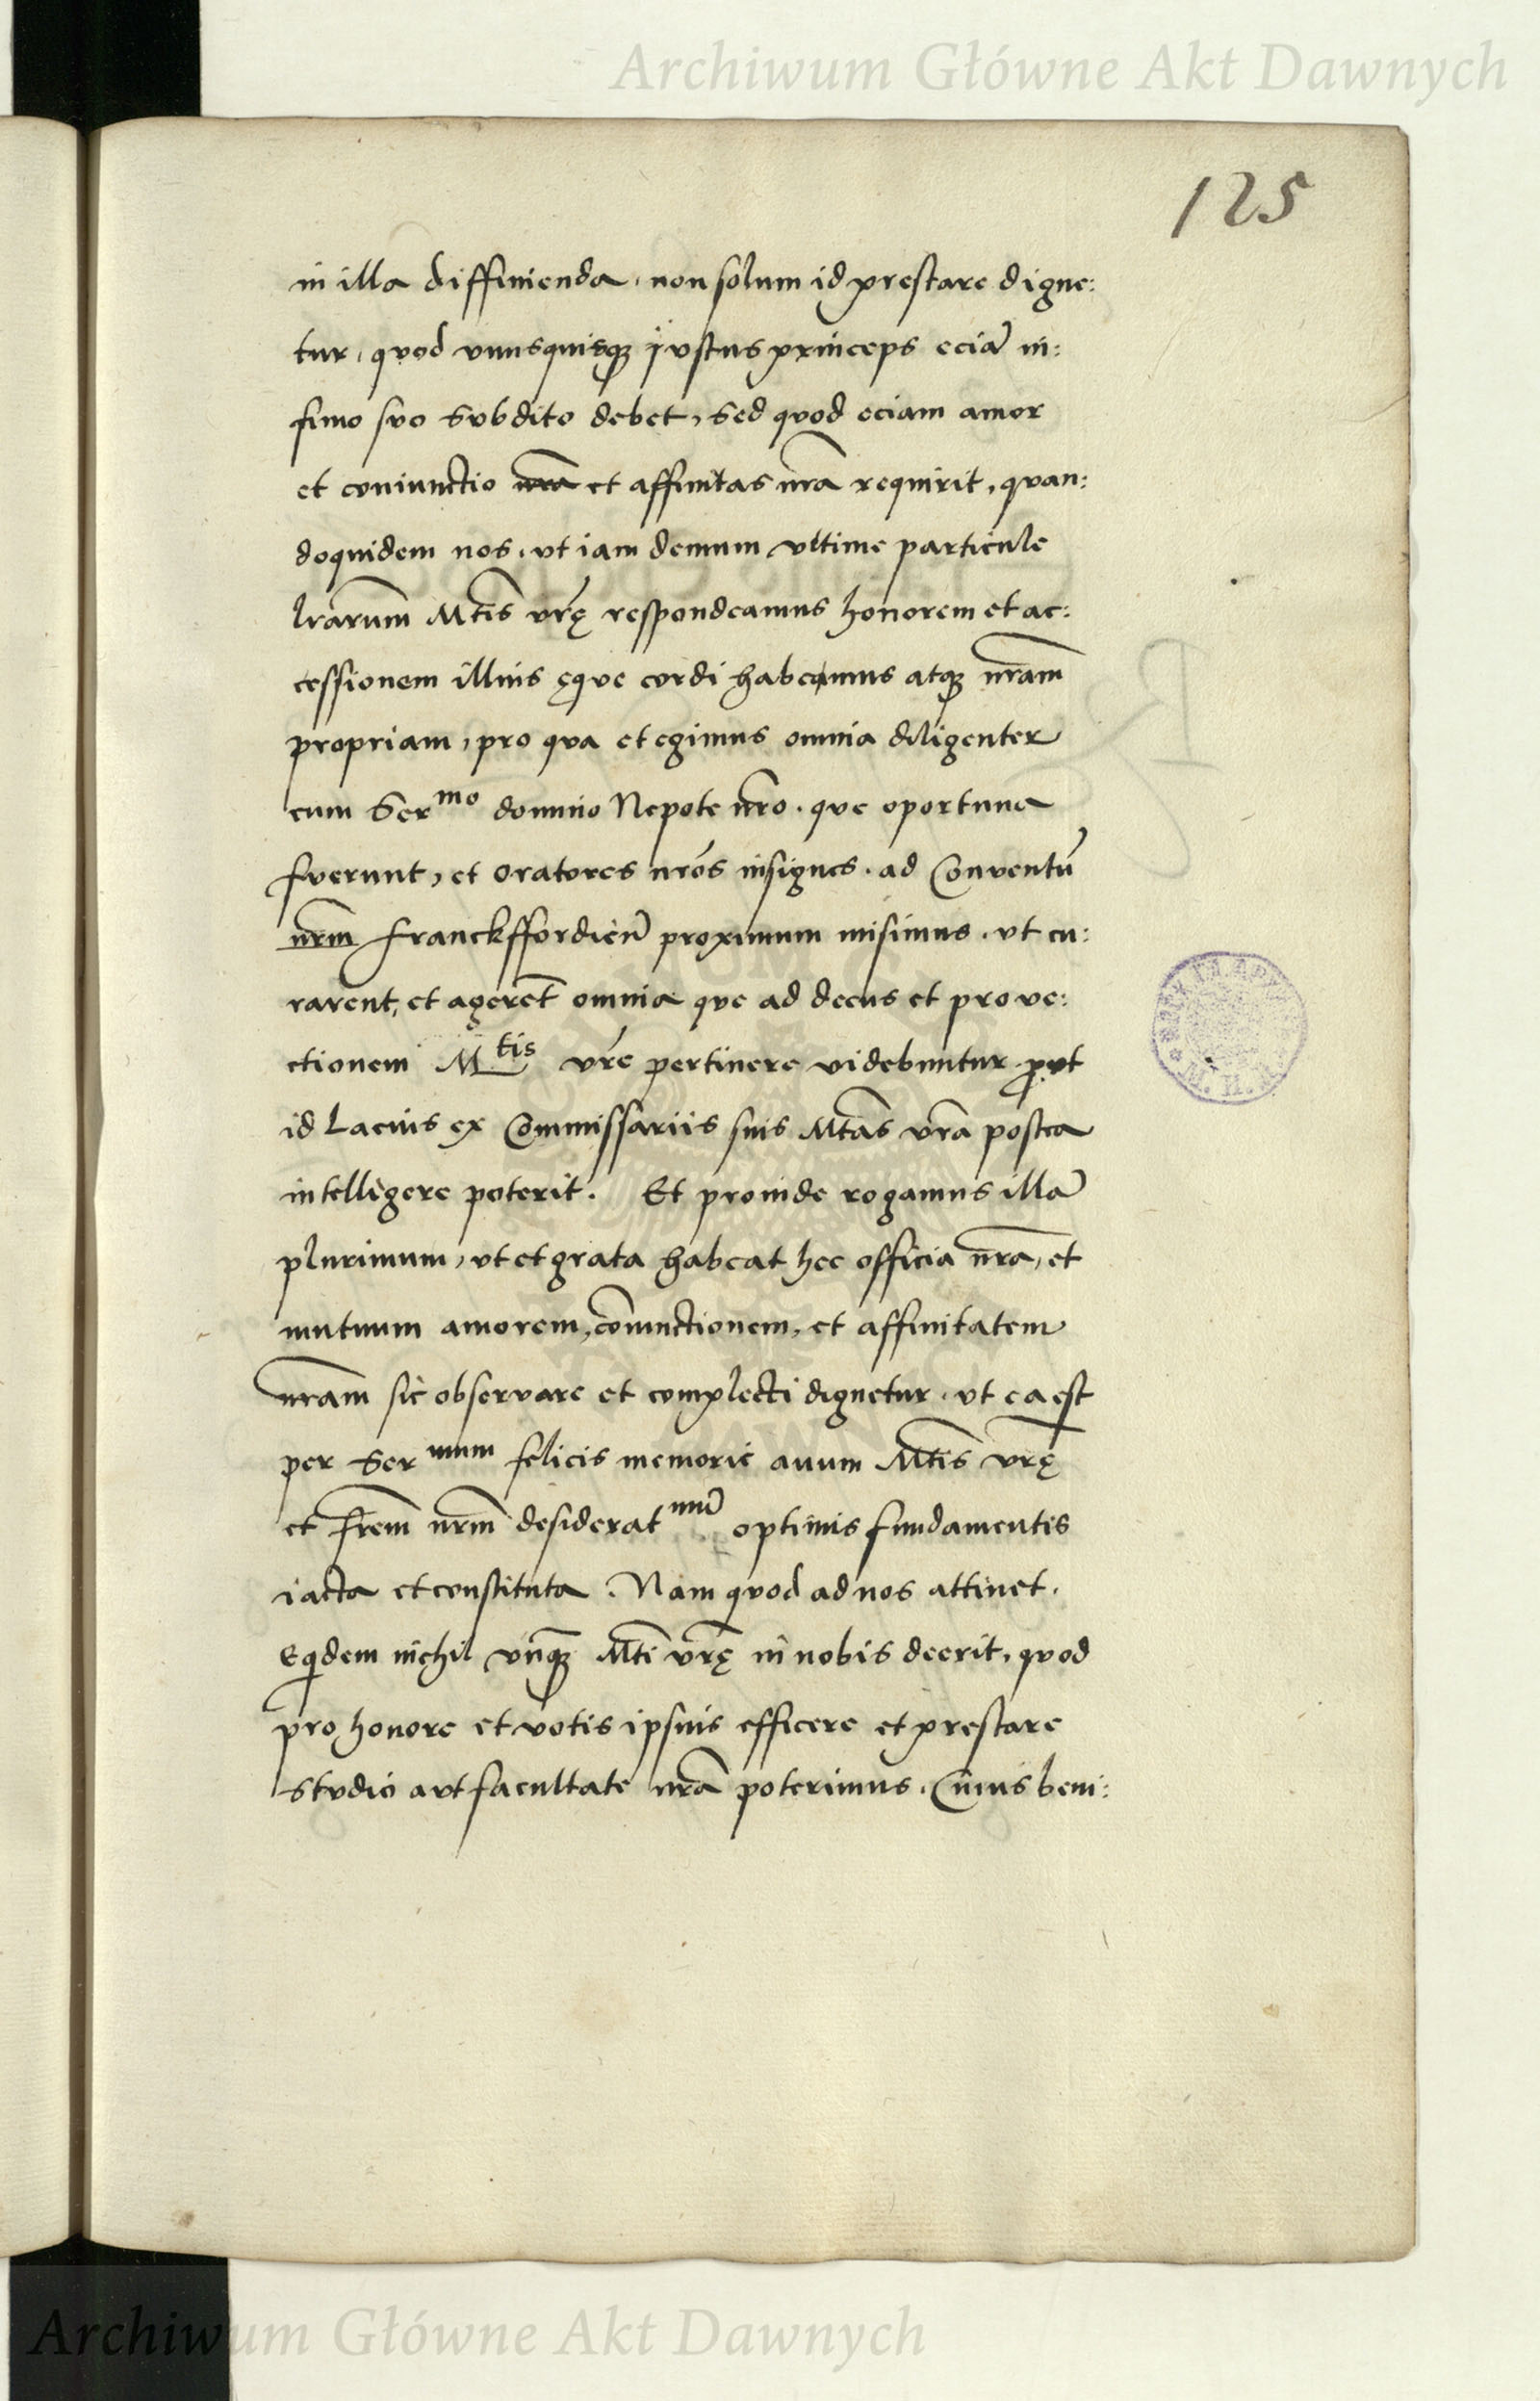 Archiwum Główne Akt Dawnych
125
in illa diffinienda, non solum id prestare digne:
tur, quod vnusquisq₃ iustus princeps eciā in:
fimo suo subdito debet, sed quod eciam amor
et coniunctio nr̄a et affinitas nr̄a requirit, quan:
doquidem nos, vt iam demum vltime particule
lr̄arum Mt̄is vr̄ę respondeamus honorem et ac:
cessionem illius ęque cordi habeamus atq₃ nr̄am
propriam, pro qua et egimus omnia diligenter
cum Ser^mo domino Nepote nr̄o. que oportuna
fuerunt, et oratores nr̄os insignes. ad Conventū
nr̄m Franckffordień proximum misimus. vt cu:
rarent, et agerēt omnia que ad decus et prove:
ctionem M^tis vr̄e pertinere videbuntur prout
id Lacius ex Commissariis suis Mt̄as vr̄a postea
intelligere poterit. Et proinde rogamus illā
plurimum, vt et grata habeat hec officia nr̄a, et
mutuum amorem, cōiunctionem, et affinitatem
nr̄am sic observare et complecti dignetur. vt ea est
per Ser^mum felicis memorie auum Mt̄is vr̄ę
et fr̄em nr̄m desiderat^mū optimis fundamentis
iacta et constituta. Nam quod ad nos attinet.
Eqidem nichil vnq̄₃ Mt̄i vr̄ę in nobis deerit, quod
pro honore et votis ipsius efficere et prestare
studio aut facultate nr̄a poterimus. Cuius beni:
Archiwum Główne Akt Dawnych